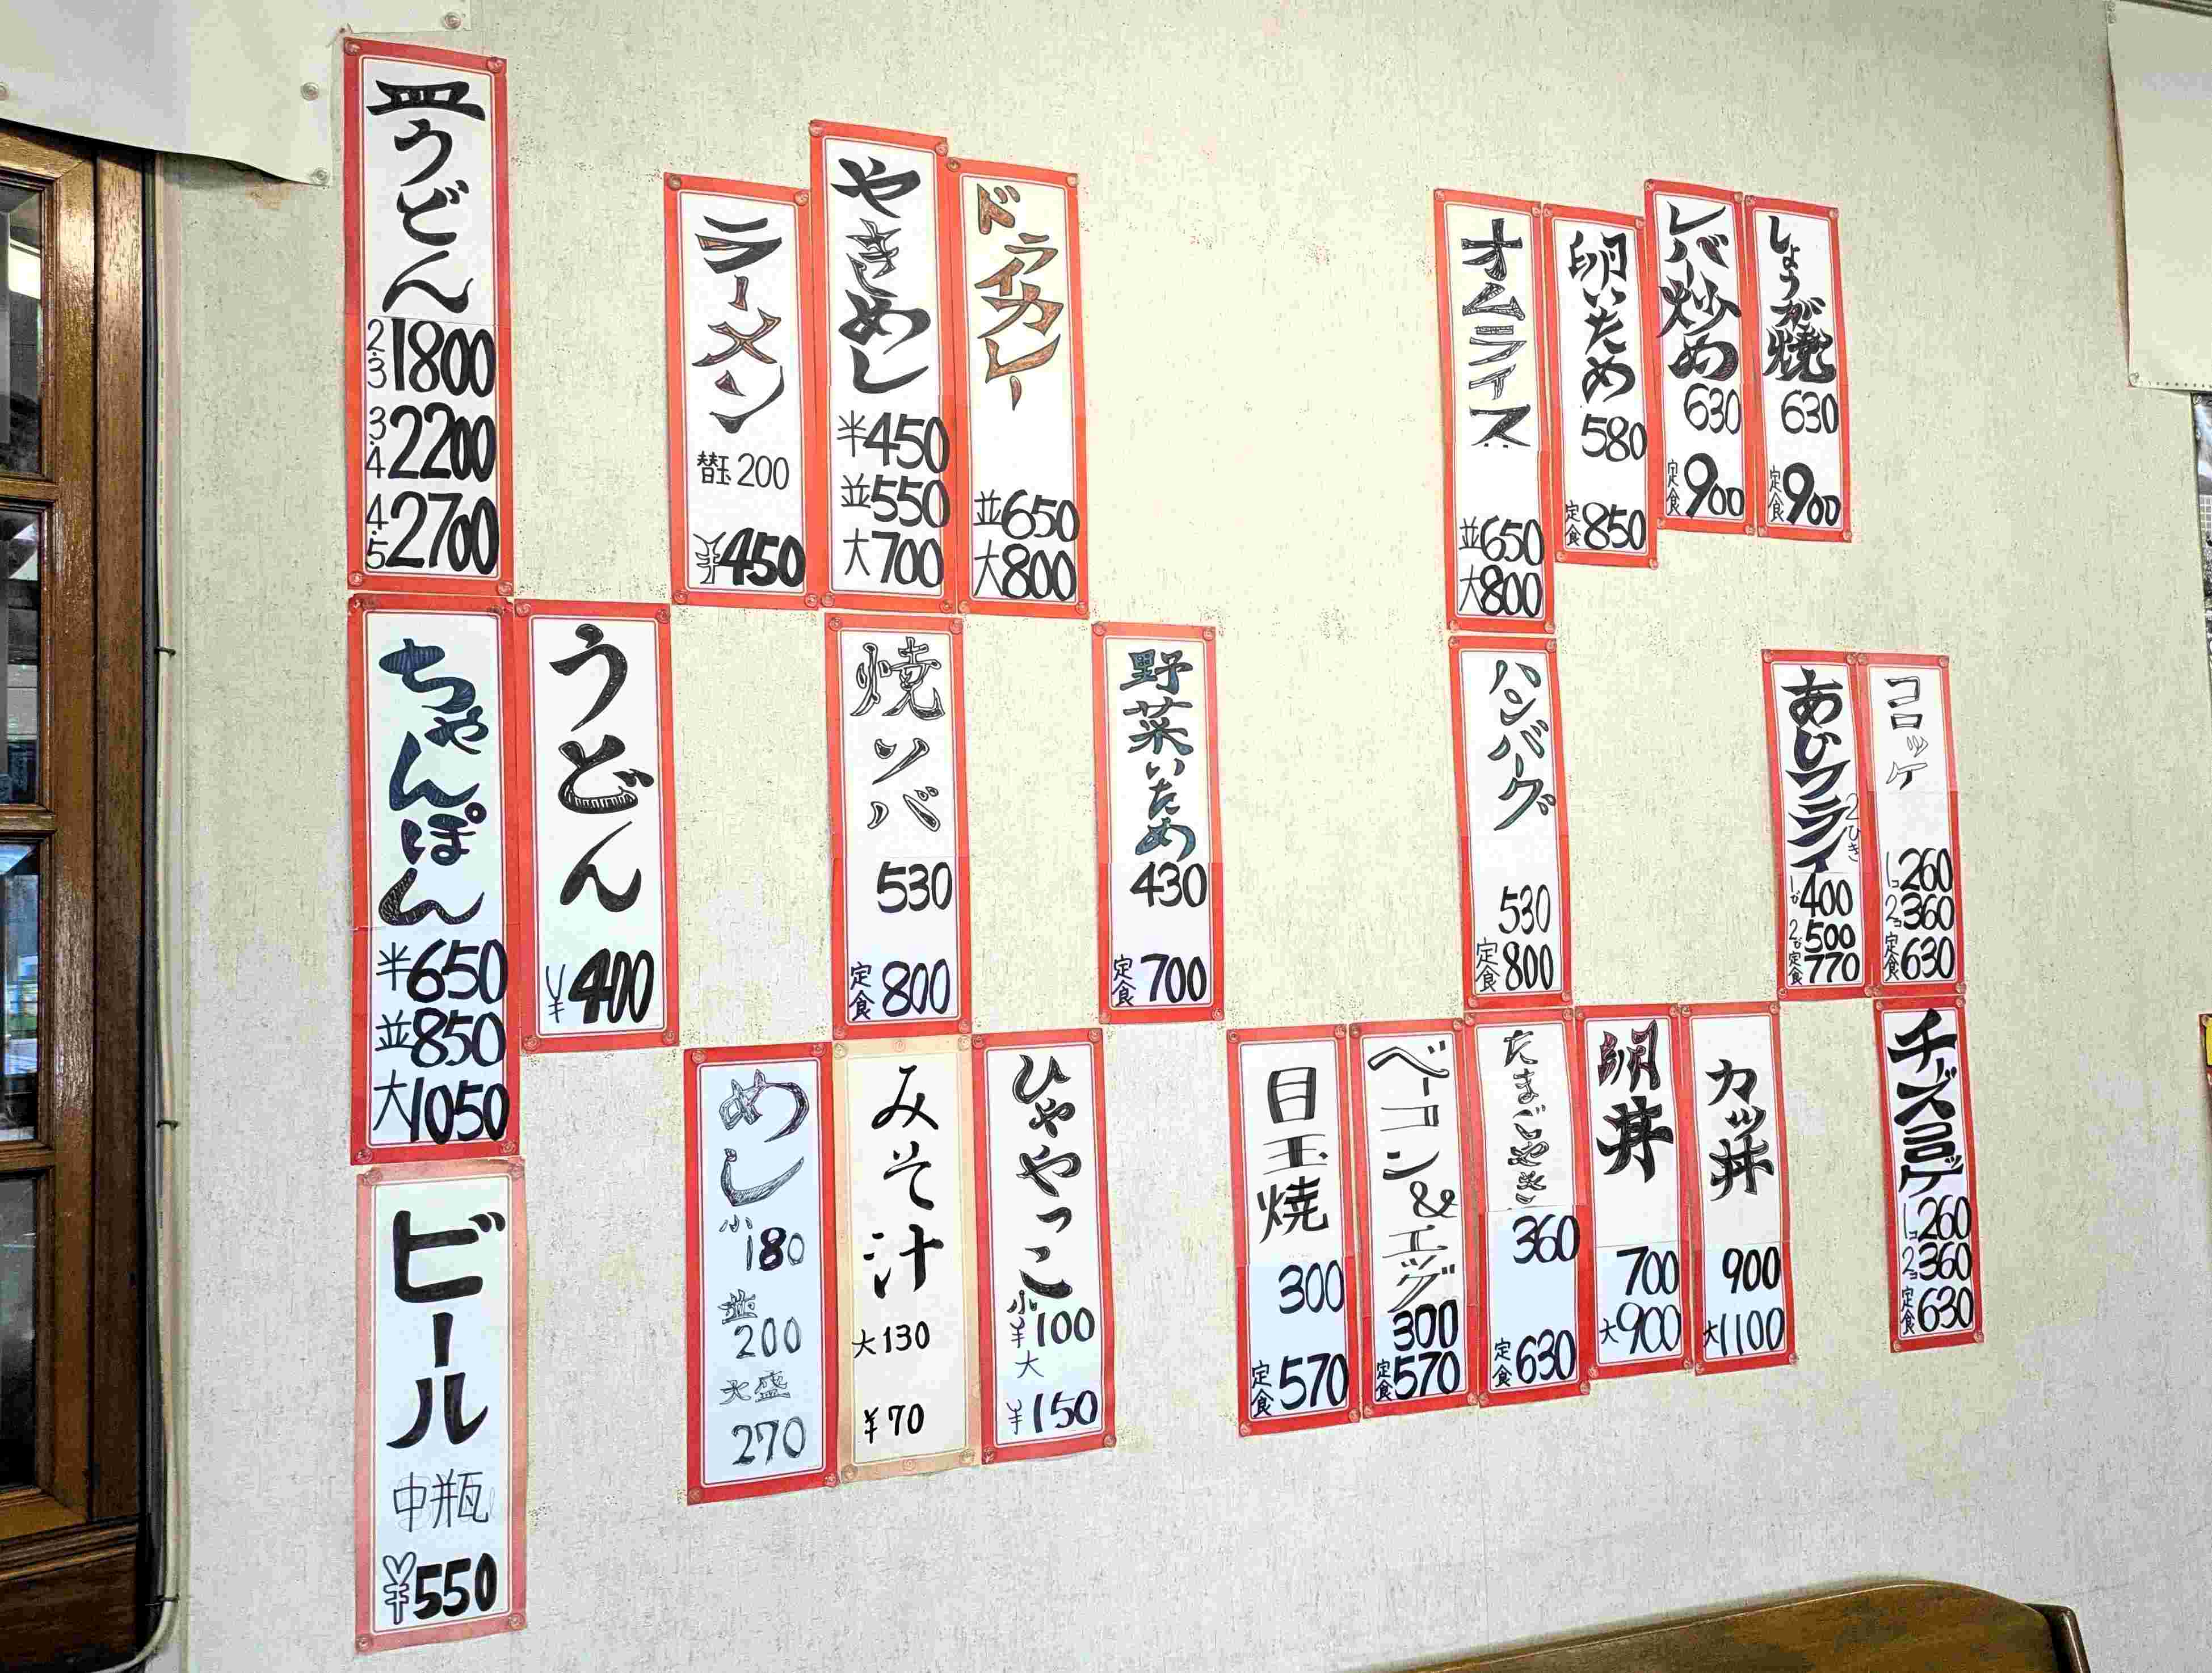 皿うどん
2.3 1800
3.4 2200
4.5 2700
ラーメン
替玉 200
¥450
やきめし
半 450
並 550
大 700
ドライカレー
並 650
大 800
オムライス
並 650
大 800
卵いため
580
定食 850
レバー炒め
630
定食 900
しょうが焼
630
定食 900
ちゃんぽん
半 650
並 850
大 1050
うどん
¥400
焼ソバ
530
定食 800
野菜いため
430
定食 700
ハンバーグ
530
定食 800
あじフライ
2ひき
1 400
2 500
定食 770
コロッケ
1コ 260
2コ 360
定食 630
ビール
中瓶
¥550
めし
小
180
並
200
大盛
270
みそ汁
大 130
¥70
ひややっこ
小
¥100
大
¥150
目玉焼
300
定食 570
ベーコン&エッグ
300
定食 570
たまごやき
360
定食 630
卵丼
700
大 900
カツ丼
900
大 1100
チーズコロッケ
1コ 260
2コ 360
定食 630